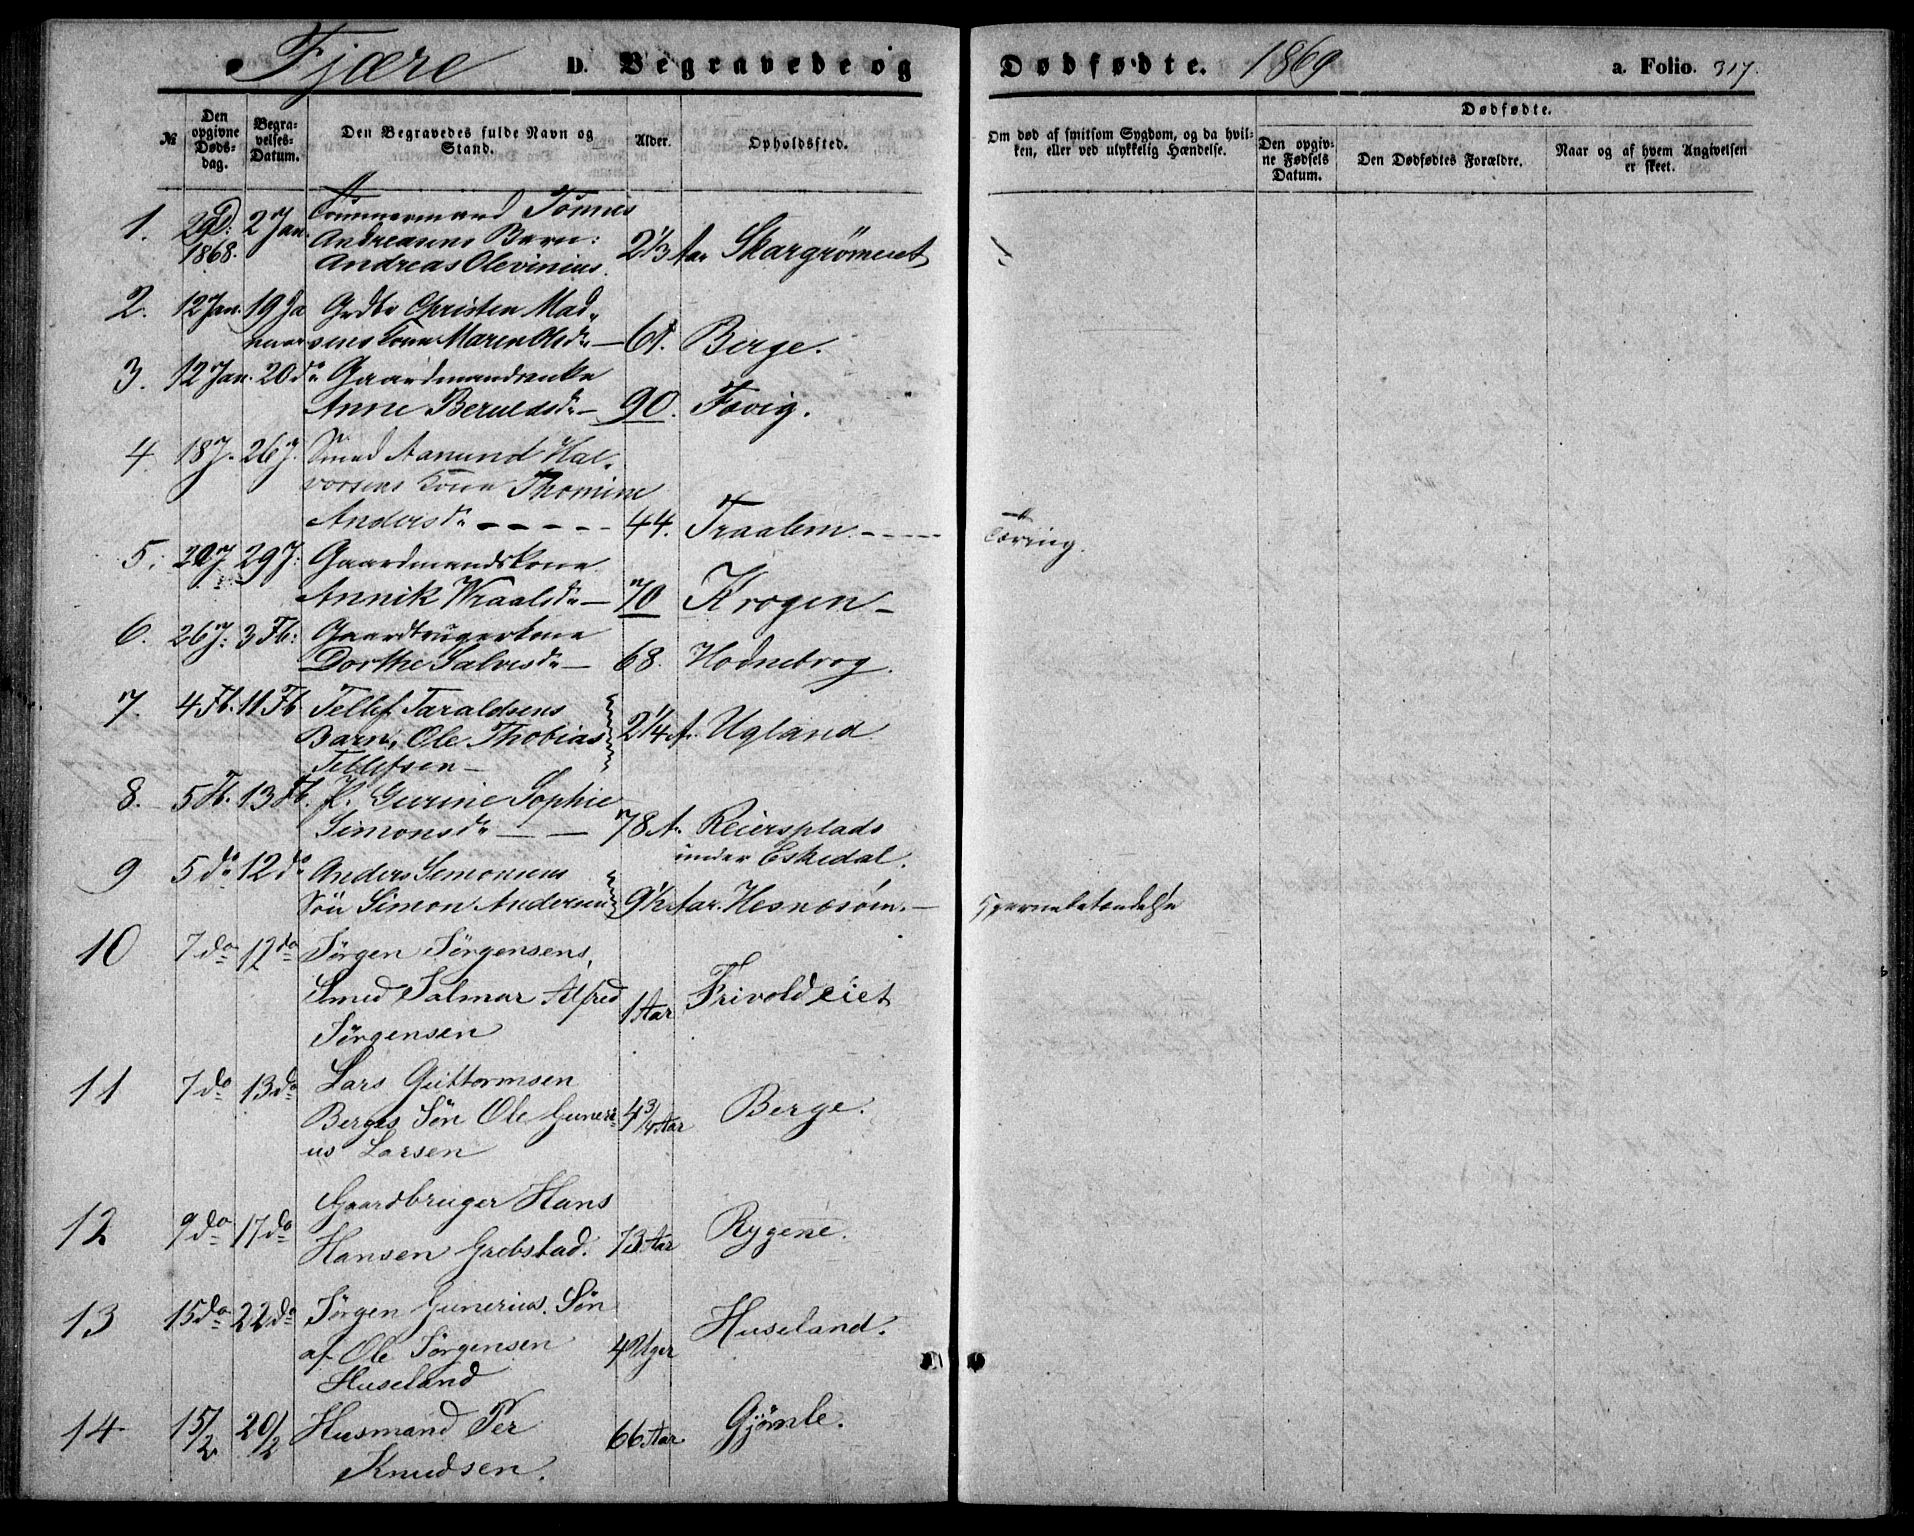 Fjære D. Begravede og Dødfødte. 1869 a. Folio. 317.
№
Den opgivne Døds-dag.
Begra-velses-Datum.
Den Begravedes fulde Navn og Stand.
Alder.
Opholdssted.
Om død af smitsom Sygdom, og da hvil-ken, eller ved ulykkelig Hændelse.
Dødfødte.
Den opgiv-ne Fødsels Datum.
Den Dødfødtes Forældre.
Naar og af hvem Angivelsen er skeet.
1. 29 D: 2 Jan. Tømmermand Tønnes
1868. Andreasens Barn:
Andreas Olevinius. 2 1/3 Aar Skargrømeset
2. 12 Jan. 19 Ja Grdbr Christen Mad„
sens Kone Maren Olsdr — 61. Berge.
3. 12 Jan. 20 do Gaardmandsenke
Anne Beruldsdr — 90. Fevig.
4. 18 J. 26 J. Smed Aanund Hal„
vorsens Kone Thomine
Andersdr - - - - - 44. Traalem. - - - - Tæring.
5. 20 J 29 J: Gaardmandskone
Annik Wraalsdr — 70 Krogen —
6. 26 J. 3 Fb: Gaardbrugerkone
Dorthe Salvesdr — 68. Hodnebrog.
7. 4 Fb. 11 Fb. Tellef Taraldsens
Barn, Ole Thobias 2 1/4 A. Ugland
Tellefsen —
8. 5 Fb. 13 Fb. P. Gurine Sophie
Simonsdr — — 78 A. Reiersplads
under Eskedal.
9 5 do 12 do Anders Simonsens
Søn Simon Andersen 9 1/2 Aar. Hesnesøen. — Hjernebetændelse
10 7 do 12 do Jørgen Jørgensens,
Smed Salmar Alfred 1 Aar Frivoldeiet
Jørgensen
11 7 do 13 do Lars Guttormsen
Berges Søn Ole Guneri- 4 3/4 Aar Berge.
us Larsen
12 9 do 17 do Gaardbruger Hans
Hansen Grebstad. 73 Aar Rygene.
13 15 do 22 do Jørgen Gunerius. Søn
af Ole Jørgensen 4 Uger Huseland.
Huseland
14 15/2 20/2 Husmand Per 66 Aar Gjømle.
Knudsen.